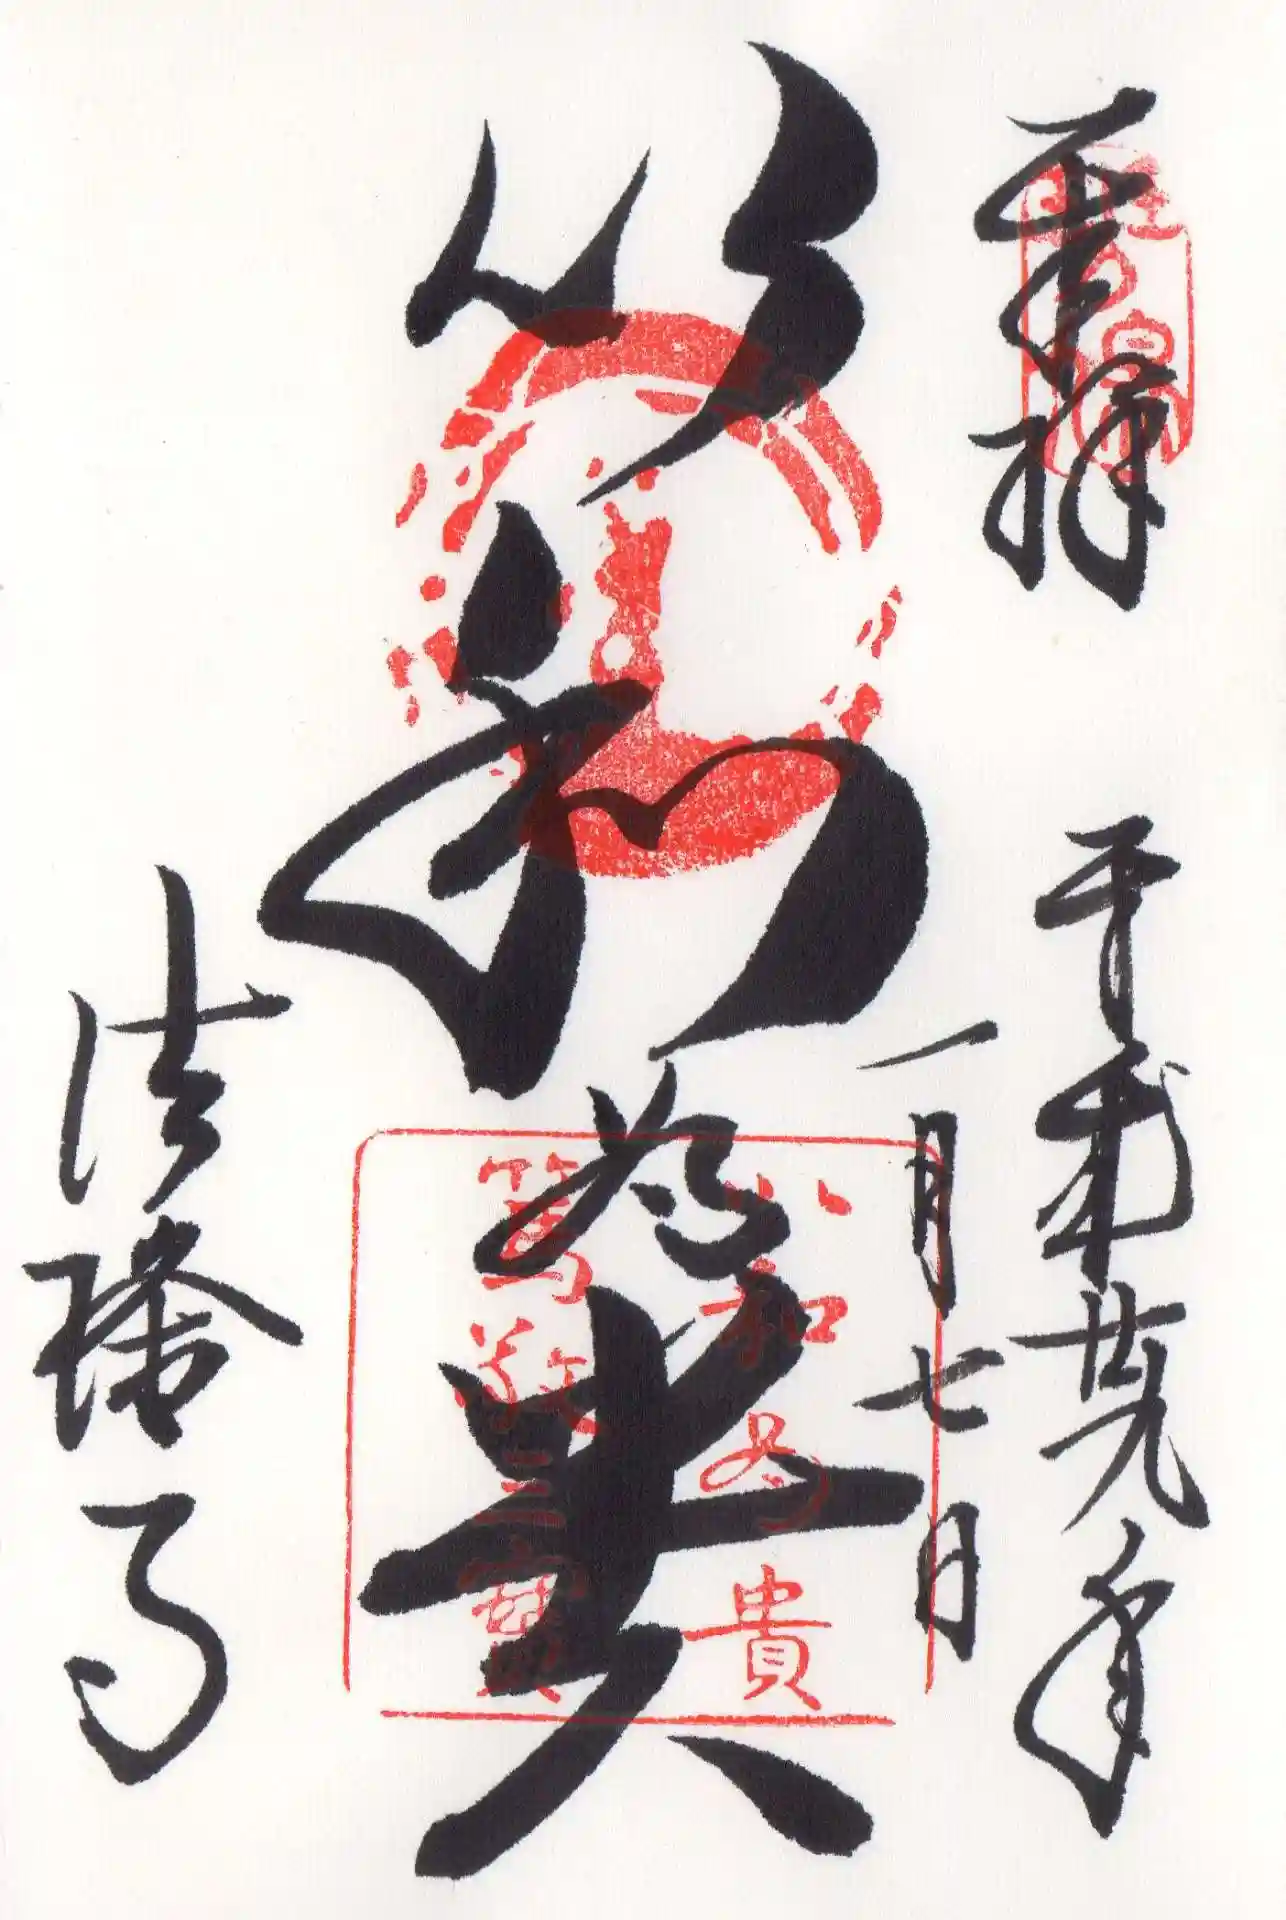 奉拝
平成廿九年
一月七日
以和為貴
以和為貴
篤敬三寶
法隆寺